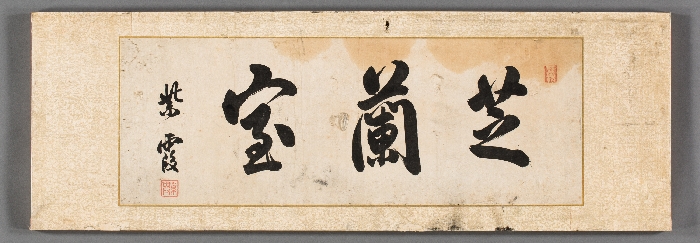 芝蘭室
紫霞